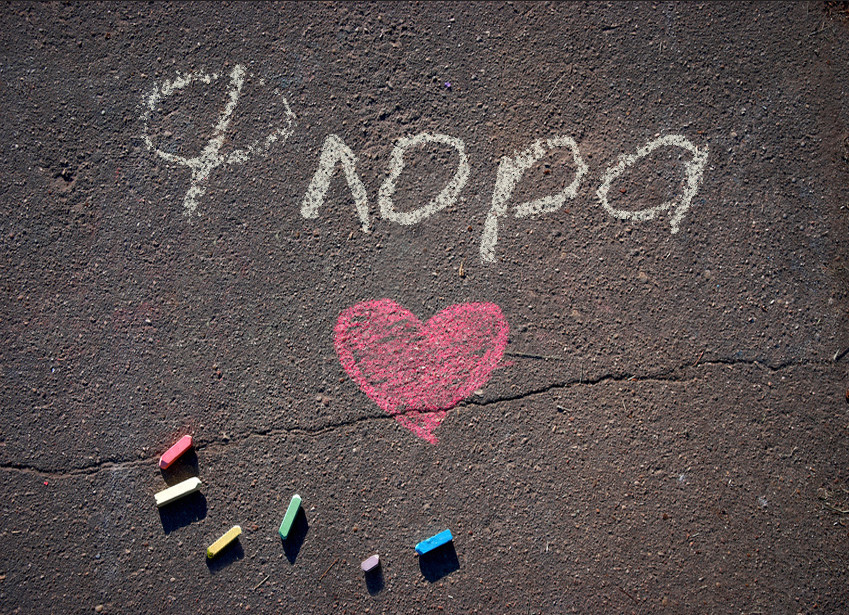 Флора